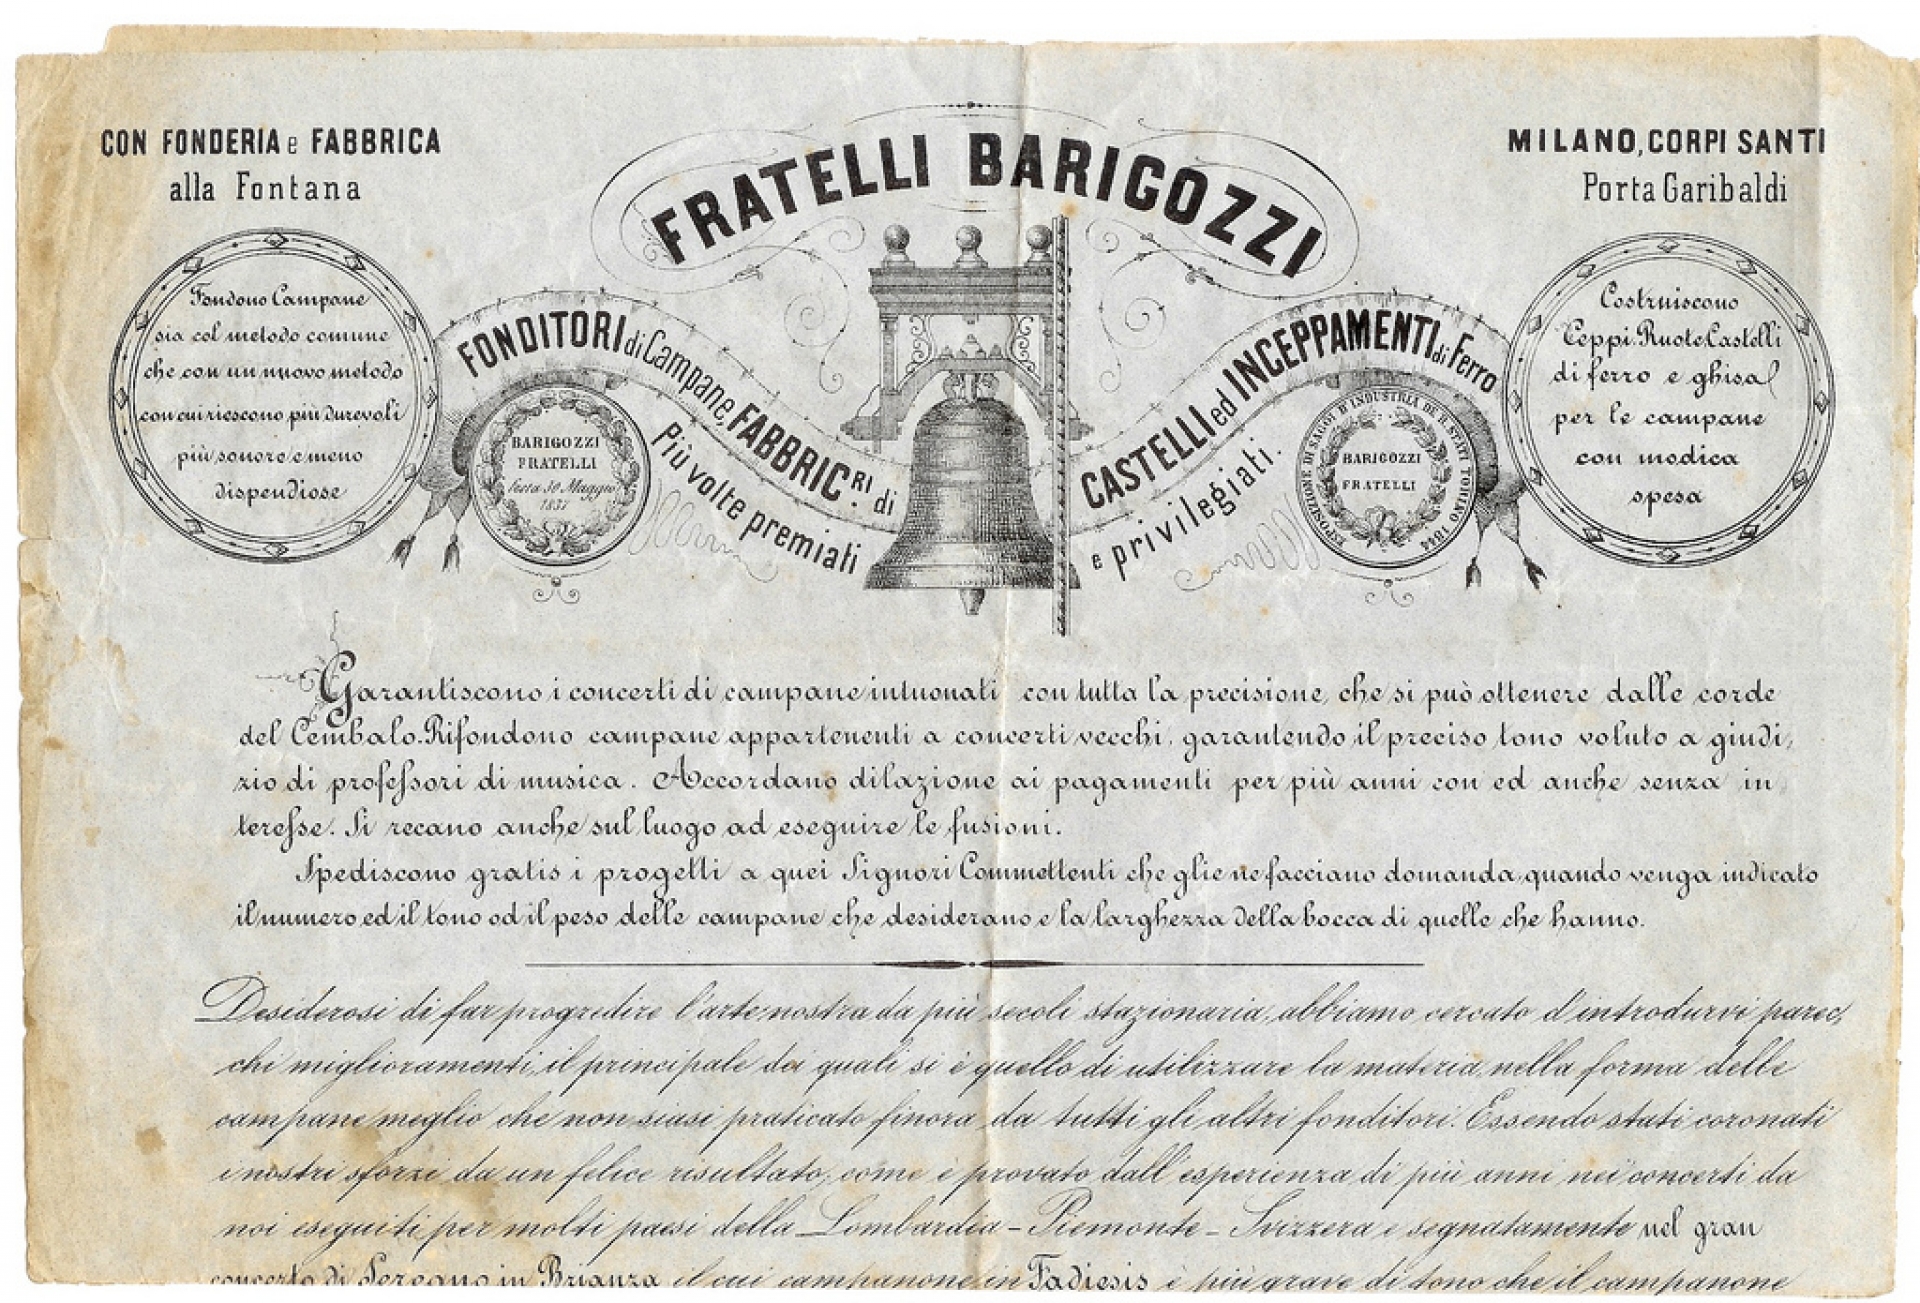 CON FONDERIA e FABBRICA
alla Fontana
FRATELLI BARIGOZZI
MILANO, CORPI SANTI
Porta Garibaldi
Fondono Campane
sia col metodo comune
che con un nuovo metodo
con cui riescono più durevoli
più sonore e meno
dispendiose
FONDITORI di Campane, FABBRIC.RI di
CASTELLI ed INCEPPAMENTI di Ferro
Più volte premiati
e privilegiati.
BARIGOZZI
FRATELLI
30 Maggio
ESPOSIZIONE DI SAGGI D'INDUSTRIA DE R. STATI TORINO 1844
BARIGOZZI
FRATELLI
Costruiscono
Ceppi. Ruote Castelli
di ferro e ghisa
per le campane
con modica
spesa
Garantiscono i concerti di campane intuonati con tutta la precisione, che si può ottenere dalle corde
del Cembalo. Rifondono campane appartenenti a concerti vecchi, garantendo il preciso tono voluto a giudi,
zio di professori di musica. Accordano dilazione ai pagamenti per più anni con ed anche senza in,
teresse. Si recano anche sul luogo ad eseguire le fusioni.
Spediscono gratis i progetti a quei Signori Committenti che glie ne facciano domanda, quando venga indicato
il numero ed il tono od il peso delle campane che desiderano e la larghezza della bocca di quelle che hanno.
Desiderosi di far progredire l'arte nostra da più secoli stazionaria, abbiamo cercato d'introdurvi parec,
chi miglioramenti, il principale dei quali si è quello di utilizzare la materia nella forma delle
campane meglio che non siasi praticato finora da tutti gli altri fonditori. Essendo stati coronati
i nostri sforzi da un felice risultato, come è provato dall'esperienza di più anni nei concerti da
noi eseguiti per molti paesi della Lombardia - Piemonte - Svizzera e segnatamente nel gran
concerto di Seregno in Brianza il cui campanone in Fadiesis è più grave di tono che il campanone